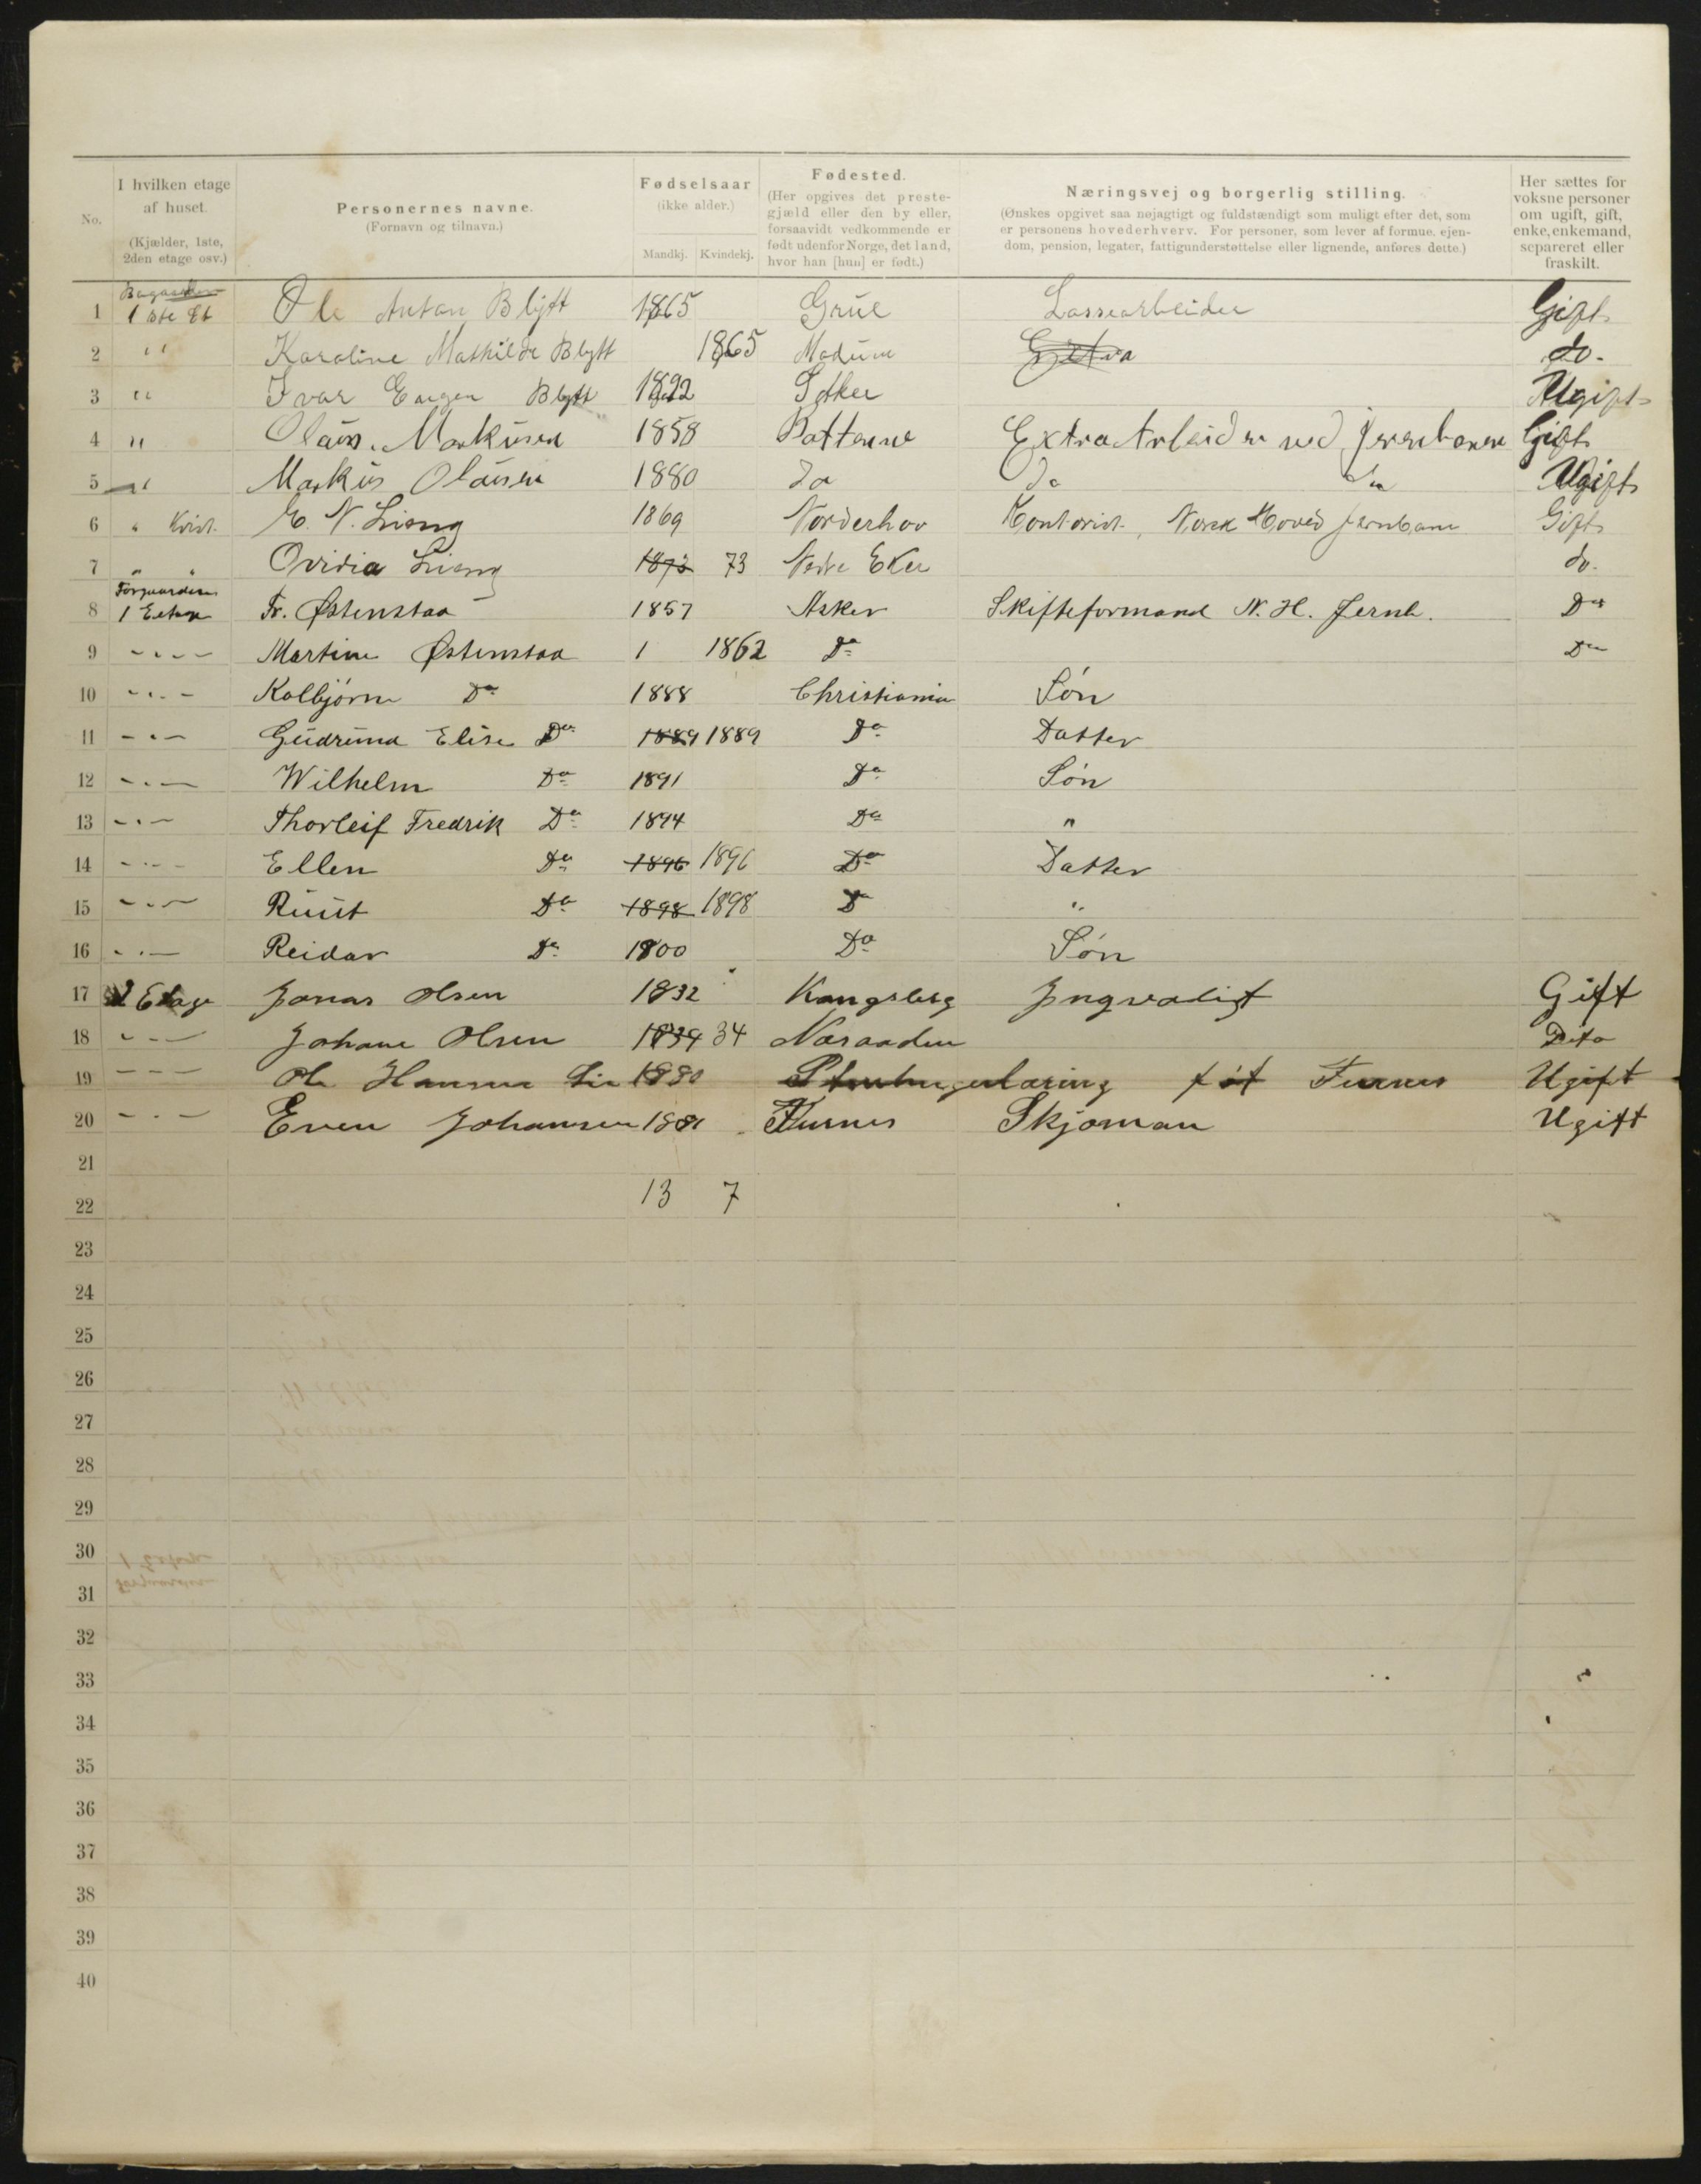 No.
I hvilken etage af huset. (Kjælder, 1ste, 2den etage osv.)
Personernes navne. (Fornavn og tilnavn.)
Fødselsaar (ikke alder.) Mandkj. Kvindekj.
Fødested. (Her opgives det prestegjæld eller den by eller, forsaavidt vedkommende er født udenfor Norge, det land, hvor han [hun] er født.)
Næringsvej og borgerlig stilling. (Ønskes opgivet saa nøjagtigt og fuldstændigt som muligt efter det, som er personens hovederhverv. For personer, som lever af formue, ejendom, pension, legater, fattigunderstøttelse eller lignende, anføres dette.)
Her sættes for voksne personer om ugift, gift, enke, enkemand, separeret eller fraskilt.
1 1ste Et Ole Anton Blytt 1865 Grue Lassearbeider Gift
2 " Karoline Mathilde Blytt 1865 Modum do.
3 " Ivar Blytt 1892 Ugift
4 " Olaus. Markusen 1858 Extra Arbeider ved Jernbanen Gift
5 " Markus Olausen 1880 do do do Ugift
6 " Kvist. E. N. Lieng 1869 Norderhov Kontorist, Norsk Hoved Jernbane Gift
7 " " Ovidia Lieng 1873 73 Nedre Eker do.
Forgaarden
8 1 Etage Fr. Østenstad 1857 Asker Skifteformand N. H. Jernb. Do
9 " Martine Østenstad 1 1862 Do Do
10 " Kolbjørn Do 1888 Christiania Søn
11 " Gudrund Elise Do 1889 1889 Do Datter
12 " Wilhelm Do 1891 Do Søn
13 " Thorleif Fredrik Do 1894 Do "
14 " Ellen Do 1896 1896 Do Datter
15 " Ruut Do 1898 1898 Do "
16 " Reidar Do 1900 Do Søn
17 2 Etage Jonas Olsen 1832 Kongsberg Gift
18 " Johane Olsen 1834 34 Dito
19 " Ole Hansen Lie 1880 føt Furnes Ugift
20 " Even Johansen 1881 Furnes Skjoman Ugift
21
22 13 7
23
24
25
26
27
28
29
30
31
32
33
34
35
36
37
38
39
40